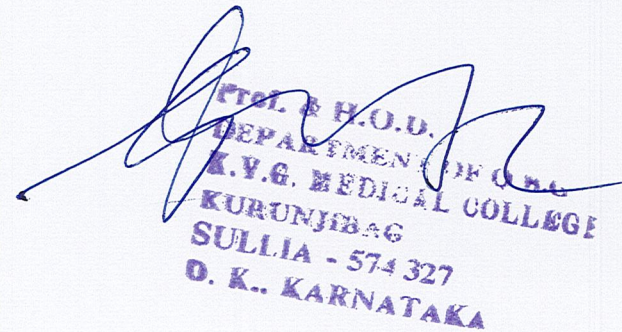 Prof. & H.O.D.
DEPARTMENT OF O.B.G
K.V.G. MEDICAL COLLEGE
KURUNJIBAG
SULLIA - 574 327
D. K.. KARNATAKA